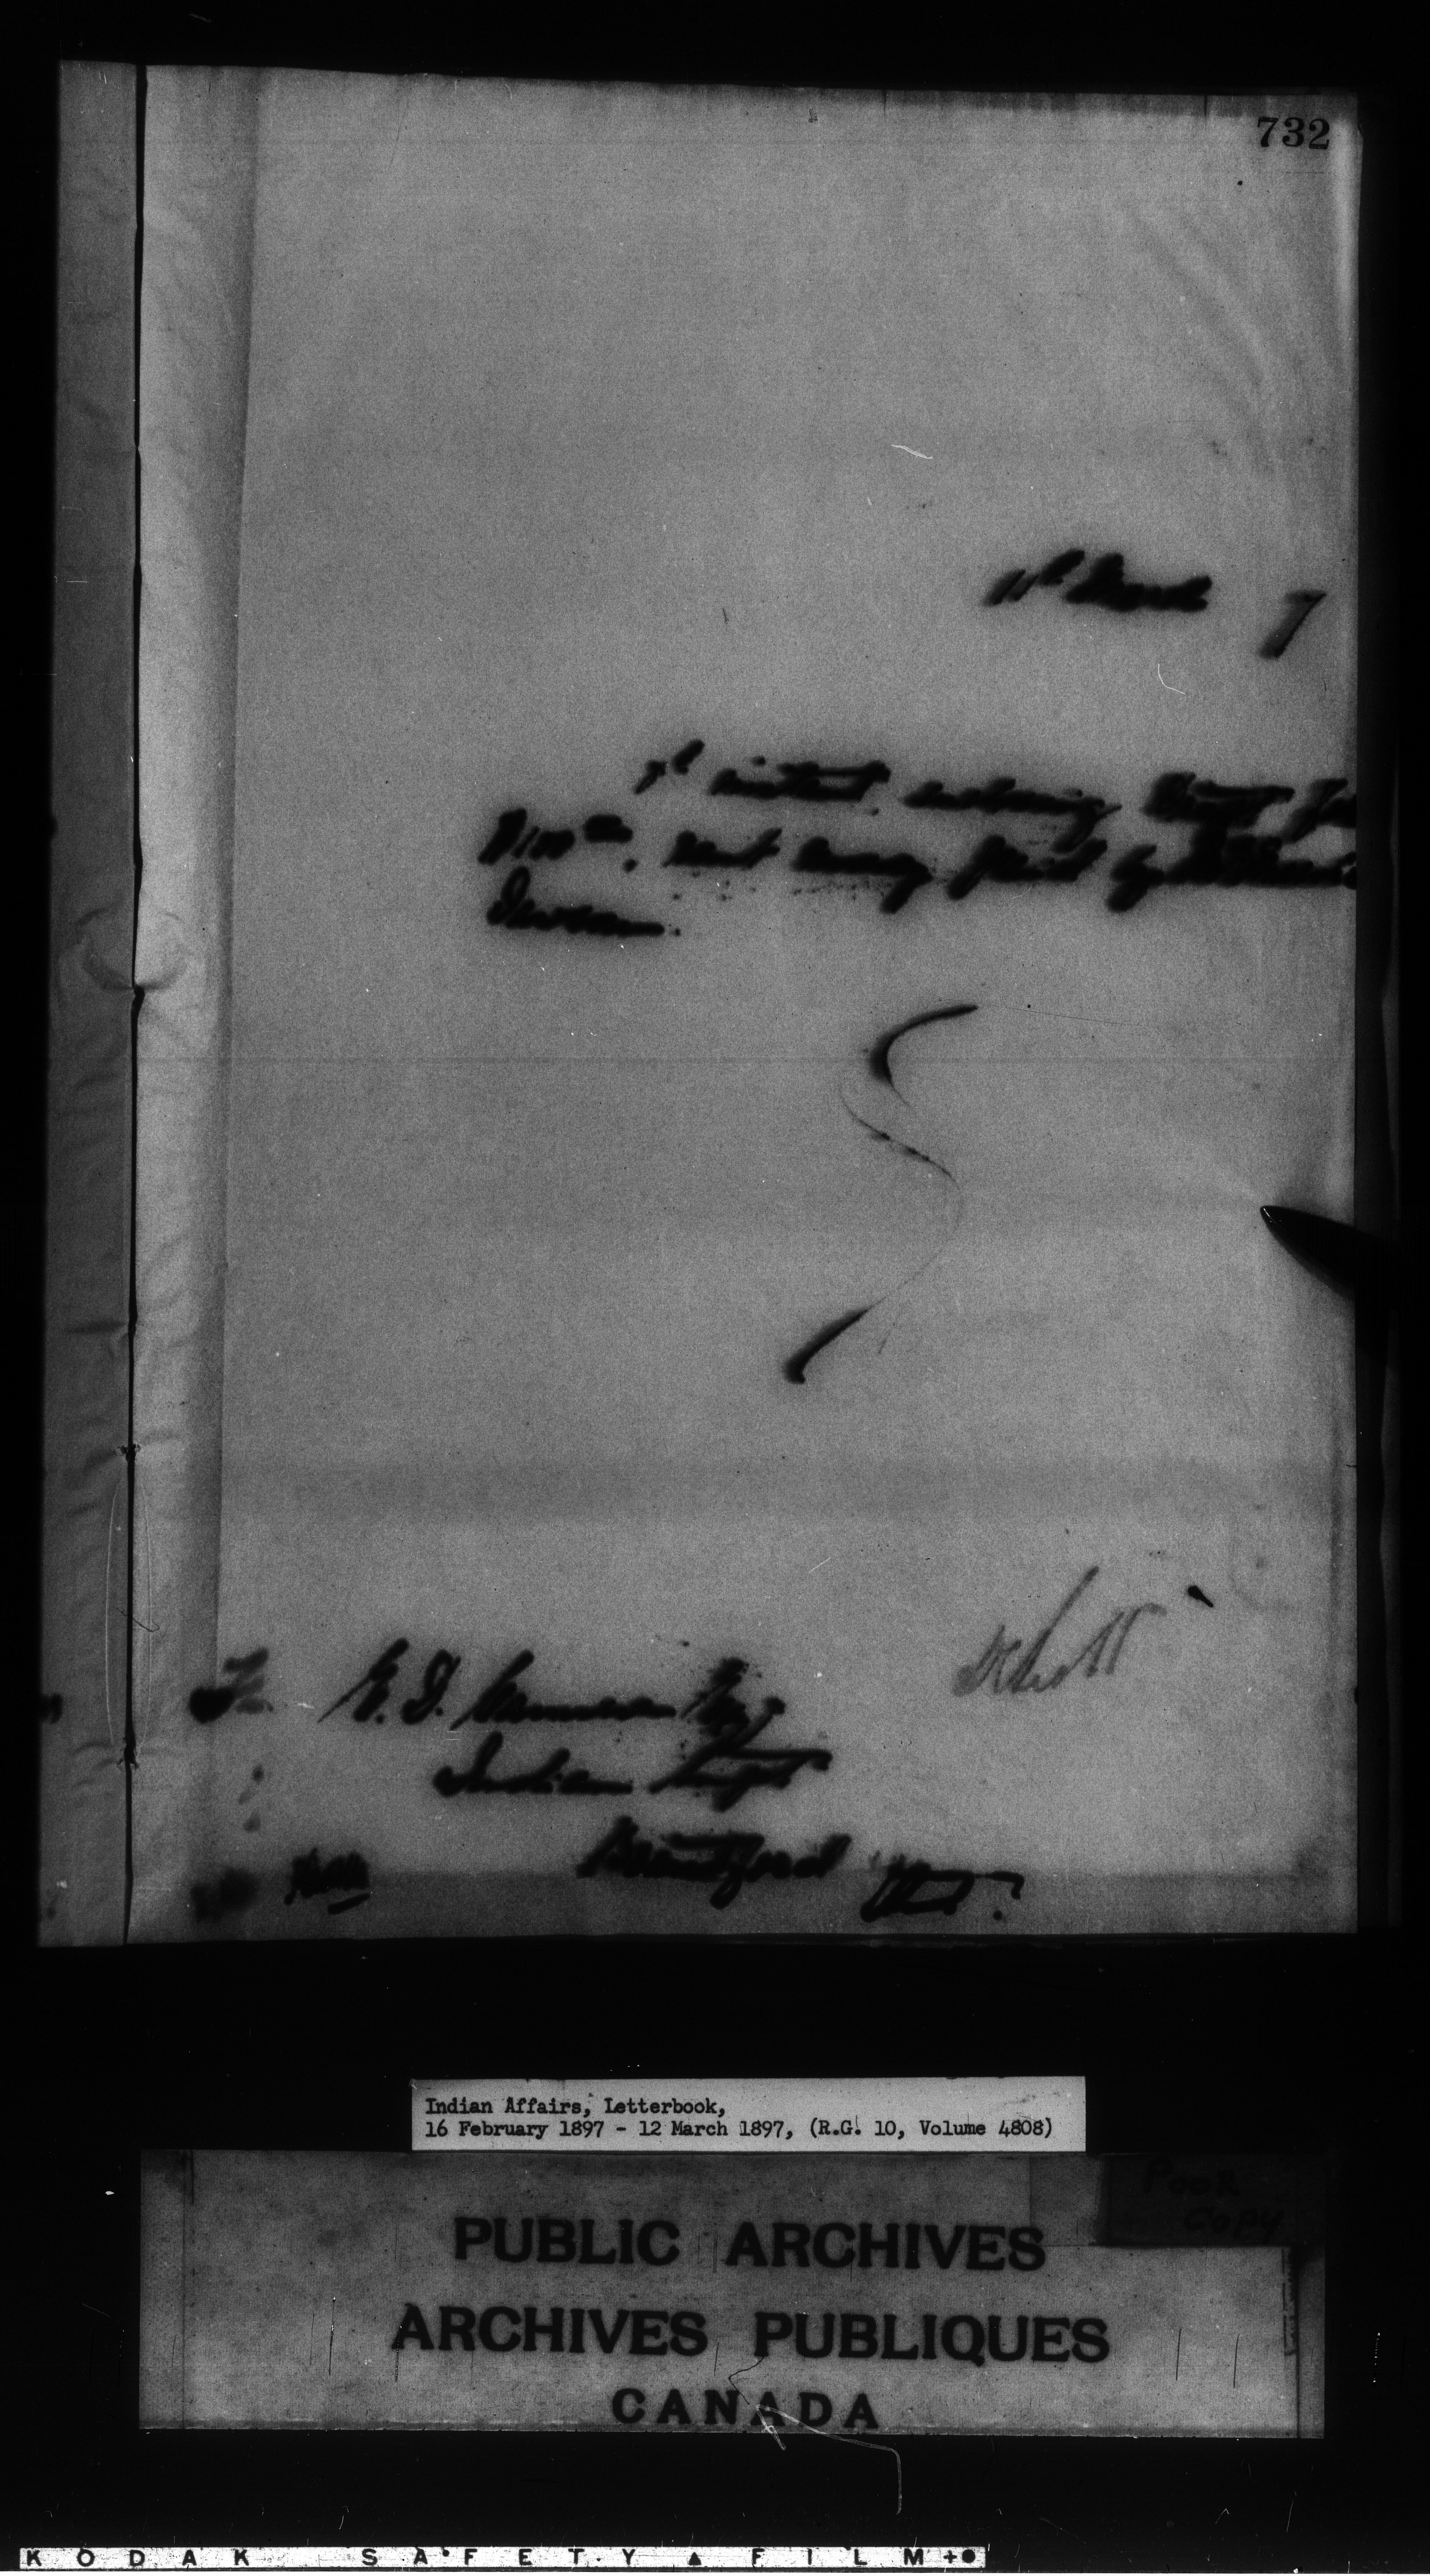 732
11th March 7
7th instant, enclosing Draft for
$100 00, rent money paid by
Dawson.
To E. D. Cameron Esq
Indian Supt
Brantford Ont.
Indian Affairs, Letterbook,
16 February 1897 - 12 March 1897, (R.G. 10, Volume 4808)
Poor
Copy
PUBLIC ARCHIVES
ARCHIVES PUBLIQUES
CANADA
KODAK SAFETY FILM